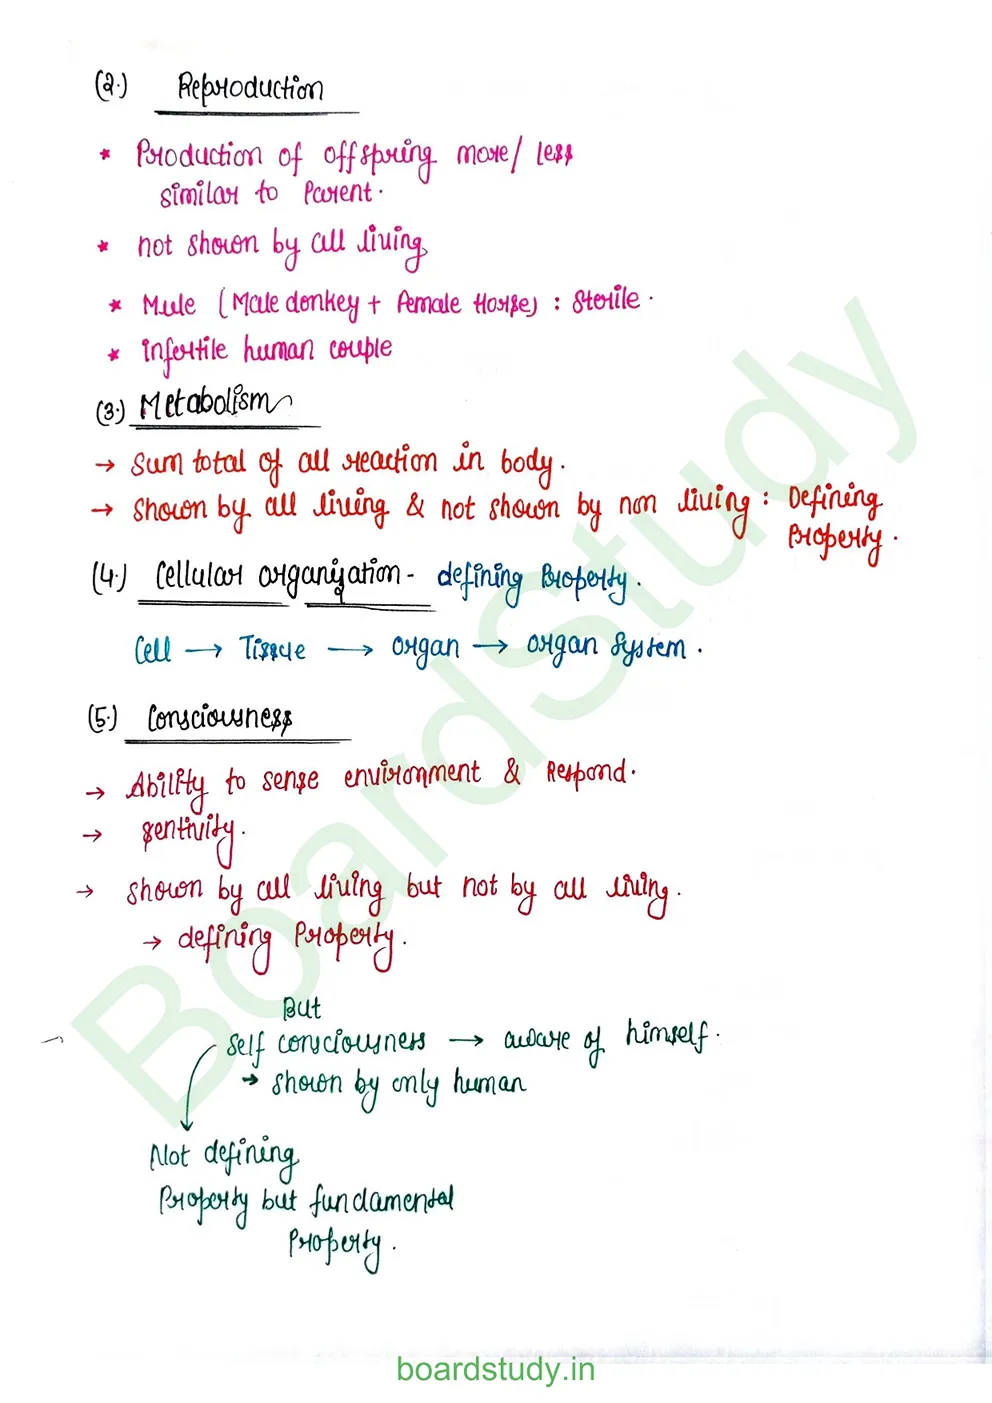 (2.) Reproduction
* Production of offspring more/less
similar to Parent.
* not shown by all living
* Mule (Male donkey + Female Horse) : Sterile.
* infertile human couple
(3.) Metabolism
→ sum total of all reaction in body.
→ Shown by all living & not shown by non living : Defining
Property.
(4.) Cellular organization - defining Property.
Cell → Tissue → organ → organ System.
(5.) Consciousness
→ Ability to sense environment & Respond.
→ sentivity.
→ Shown by all living but not by all living.
→ defining Property.
But
Self consciousness → aware of himself.
→ Shown by only human
Not defining
Property but fundamental
Property.
BoardStudy
boardstudy.in